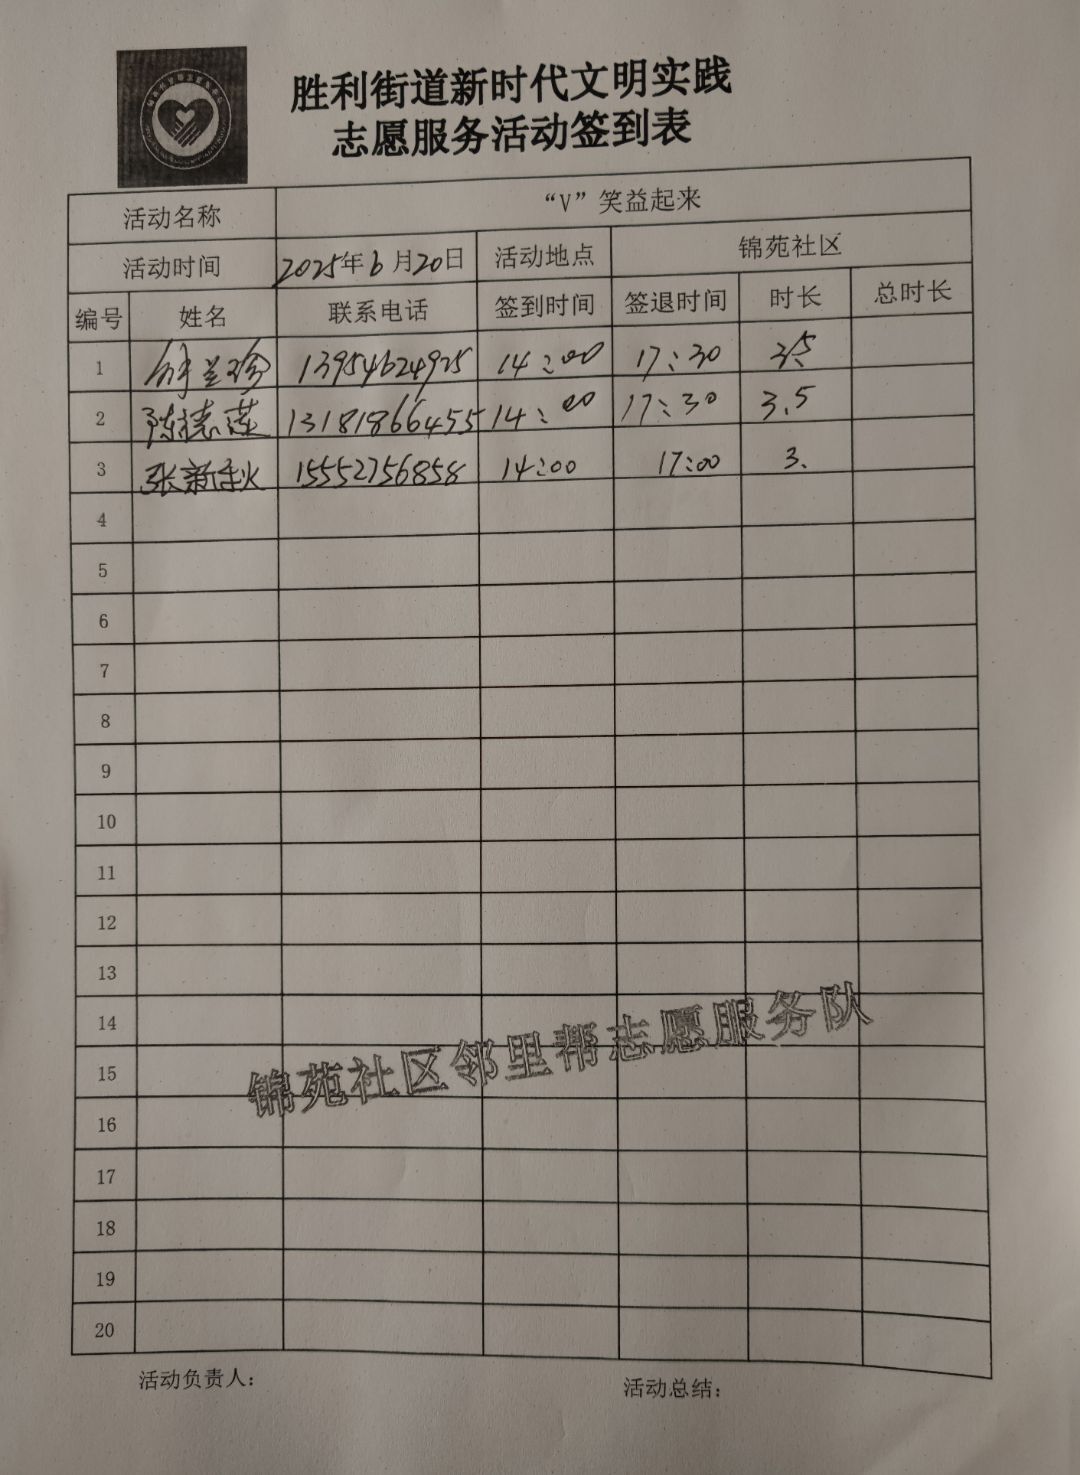 胜利街道新时代文明实践
志愿服务活动签到表
活动名称 “V”笑益起来
活动时间 2025年6月20日 活动地点 锦苑社区
编号 姓名 联系电话 签到时间 签退时间 时长 总时长
1 兰珍 13954624925 14:00 17:30 3.5
2 陈德莲 13181866455 14:00 17:30 3.5
3 张新秋 15552756858 14:00 17:00 3.
4
5
6
7
8
9
10
11
12
13
14
锦苑社区邻里帮志愿服务队
15
16
17
18
19
20
活动负责人: 活动总结: